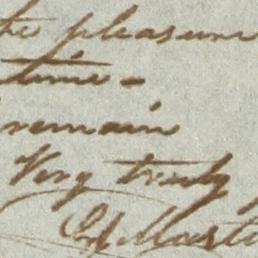 the pleasure
time -
remain
Very truly